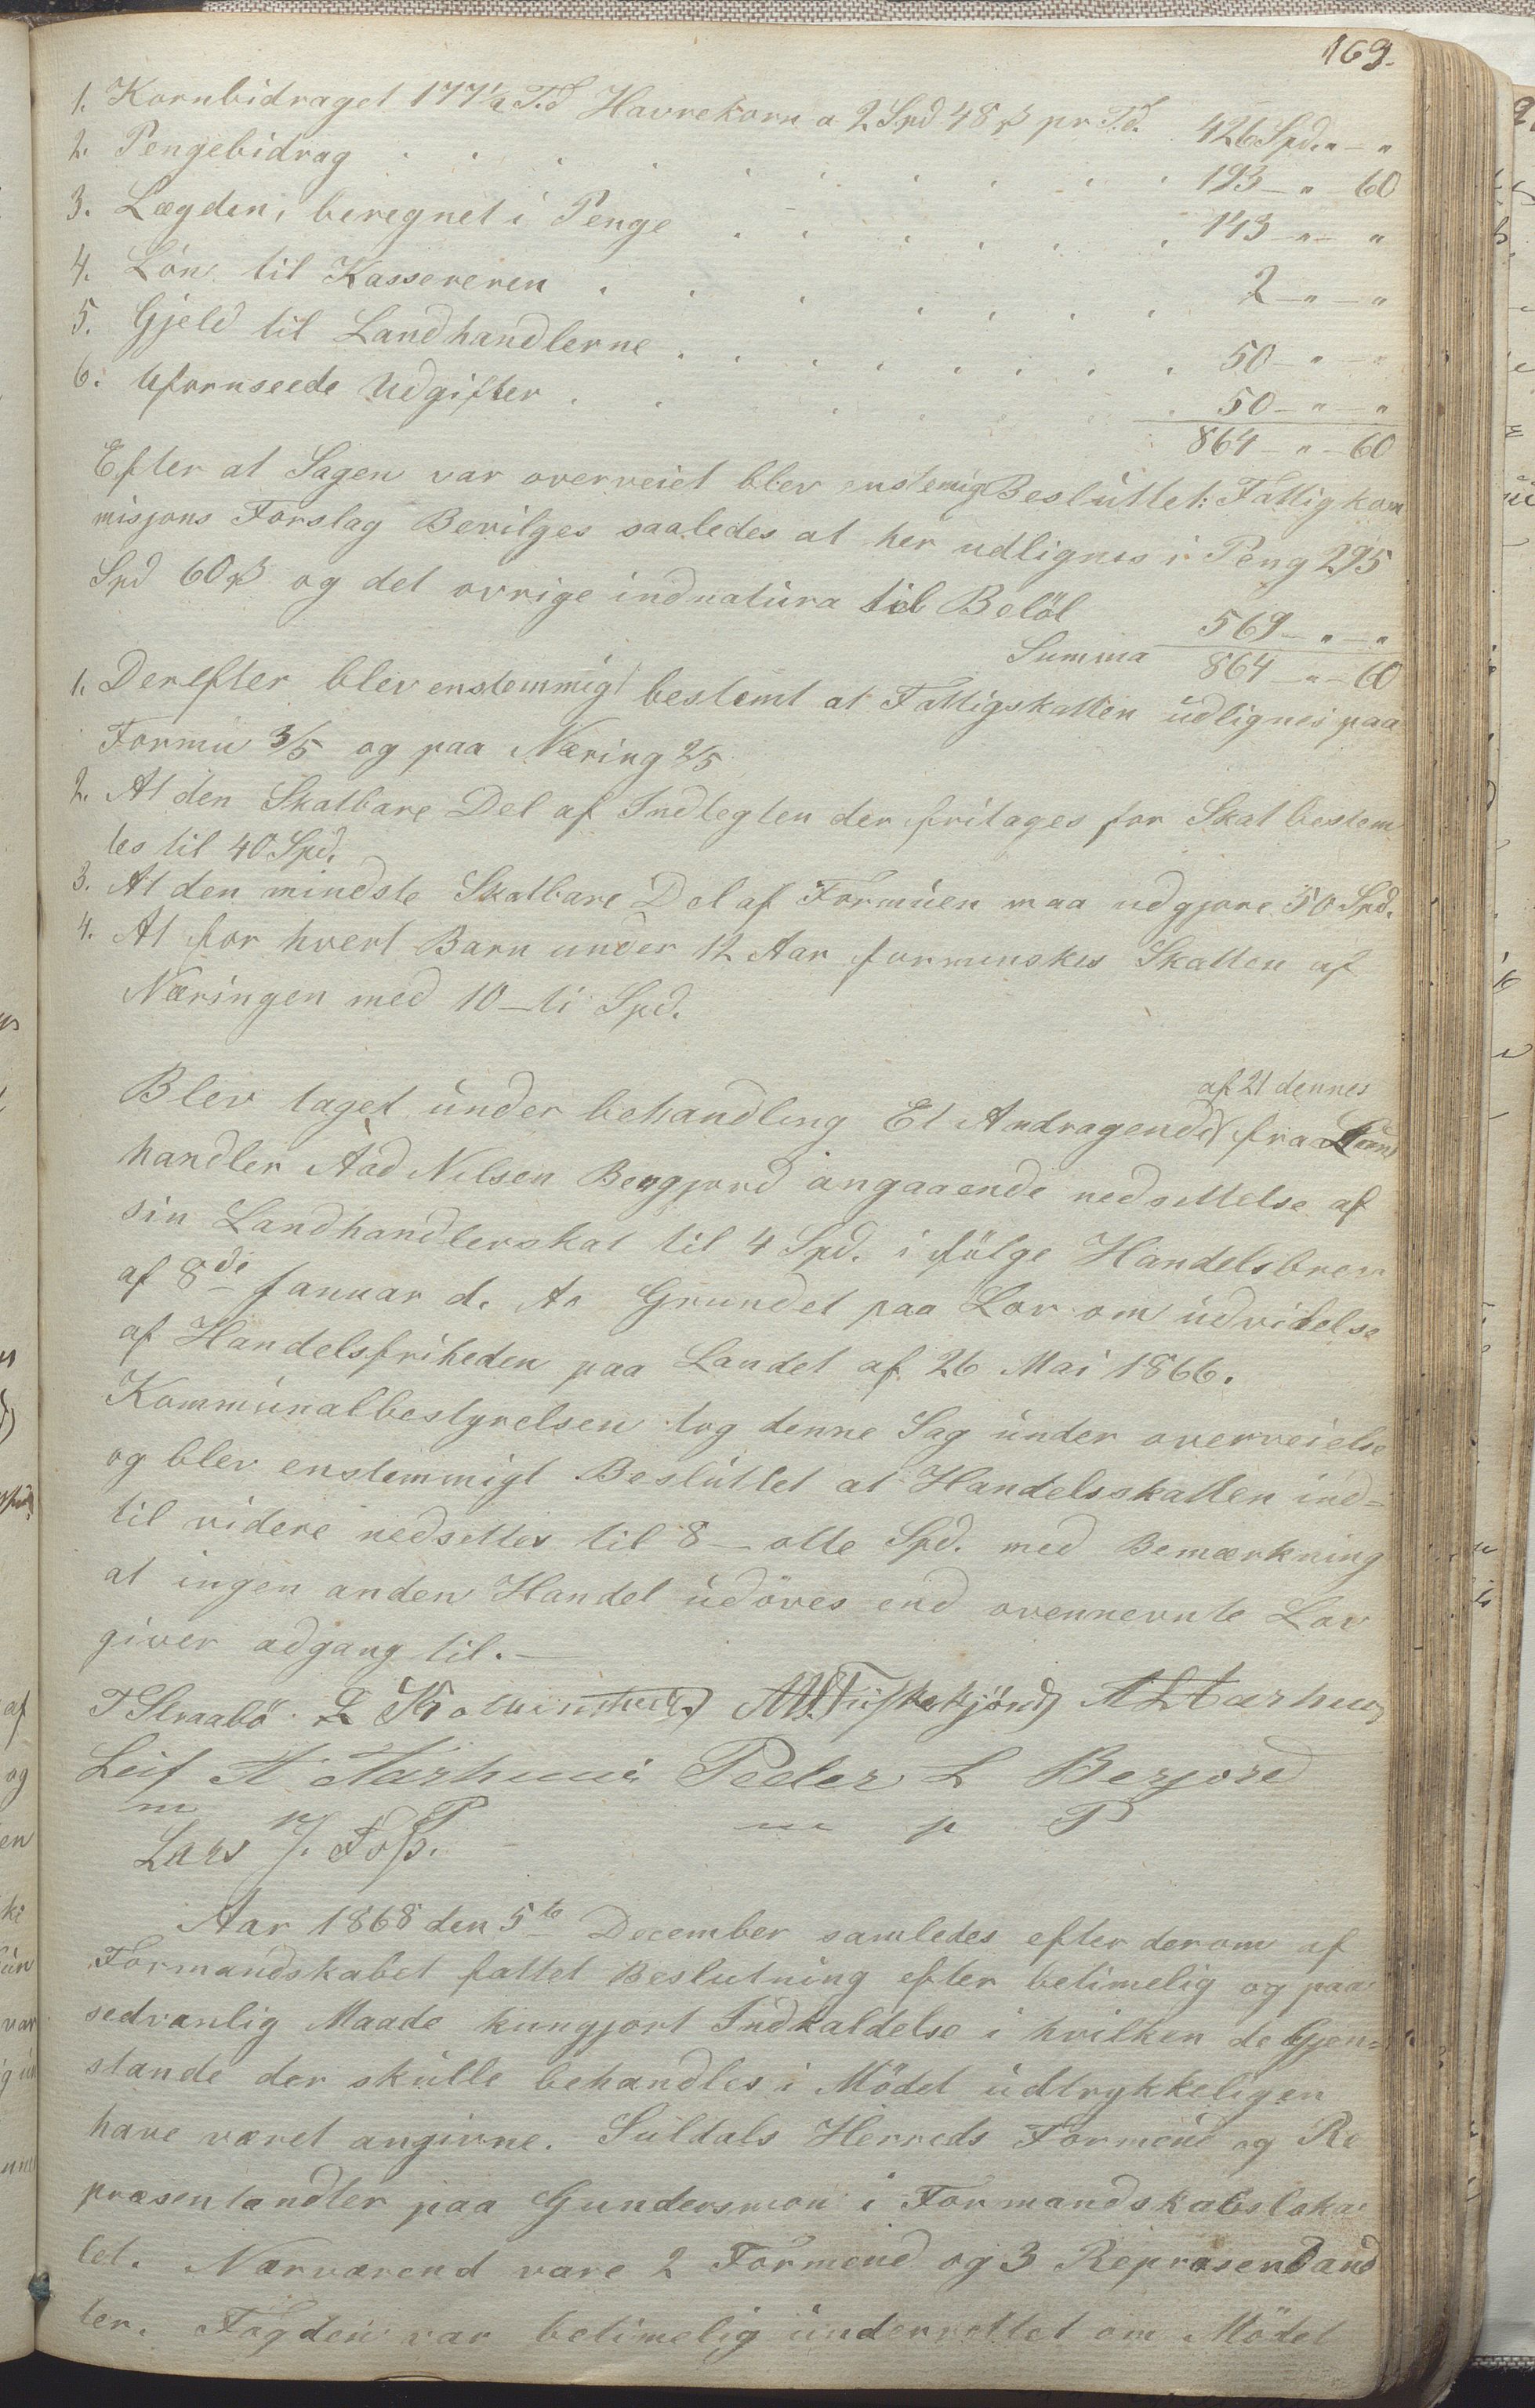 169.
1. Kornbidraget 177½ Td Havrekorn a 2 Spd 48 ß pr Td. 426 Spd. " - "
2. Pengebidrag . . . . . . . . . . 193 - " - 60
3. Lægden, beregnet i Penge . . . . . . . 143 - " - "
4. Lön til Kassereren . . . . . . . 2 - " - "
5. Gjeld til Landhandlerne . . . . . . . . 50 - " - "
6. Ufornseede Udgifter . . . . . . 50 - " - "
864 - " - 60
Efter at Sagen var overveiet blev enstemig Besluttet: Fattigkom
misjons Forslag Bevilges saaledes at her udlignes i Peng 295
Spd 60 ß og det ovrige indnatura til Belöb 569 - " - "
Summa 864 - " - 60
1. Derefter blev enstemmigt bestemt at Fattigskatten udlignes paa
Formu 3/5 og paa Næring 2/5
2. At den Skatbare Del af Indtegten der fritages for Skat bestem
tes til 40 Spd.
3. At den mindste Skatbare Del af Formuen maa udgjøre 50 Spd.
4. At for hvert Barn under 12 Aar formindskes Skatten af
Næringen med 10 - ti Spd.
af 21 dennes
Blev taget under behandling Et Andragende fra Land
handler Aad Nilsen Bergjord angaaende nedsettelse af
sin Landhandlerskat til 4 Spd. i fölge Handelsbrev
af 8de Januar d. A. Grundet paa Lov om udvidelse
af Handelsfriheden paa Landet af 26 Mai 1866.
Kommunalbestyrelsen tog denne Sag under overveielse
og blev enstemmigt Besluttet at Handelsskatten ind=
til videre nedsettes til 8 - otte Spd. med Bemærkning
at ingen anden Handel udöves end ovennevnte Lov
giver adgang til. -
T Straabö L Kolbeinstveit A Aarhuus
Leif A Aarhuus Peder L Berjord
m p P
Lars J. Foss.
Aar 1868 den 5te December samledes efter derom af
Formandskabet fattet Beslutning efter betimelig og paa
sedvanlig Maade kungjort Indkaldelse i hvilken de Gjen=
stande der skulle behandles i Mödet udtrykkeligen
have været angivne. Suldals Herreds Formend og Re
præsentandter paa Gundersmon i Formandskabsloka
let. Nærværend vare 2 Formend og 3 Repræsendand
ter. Fogden var betimelig underrettet om Mödet